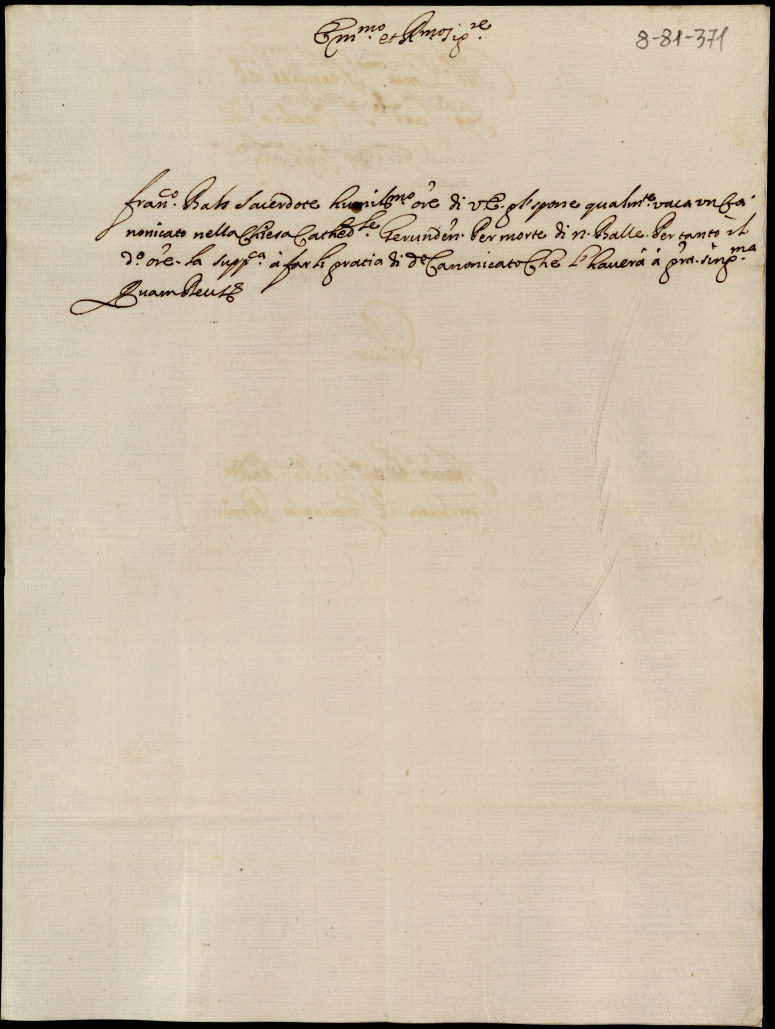 Emmo et Rmo Sigre
8-81-371
Franco. Bals Sacerdote humilmo ore di VE. gl'espone qualmte. vaca un Ca
nonicato nella Chiesa Cathedle Gerunden. Per morte di n. Balle. Per tanto il
do ore. la suppca à farli gratia di do Canonicato Che l'haverà à gra. singma
Quam Deus &